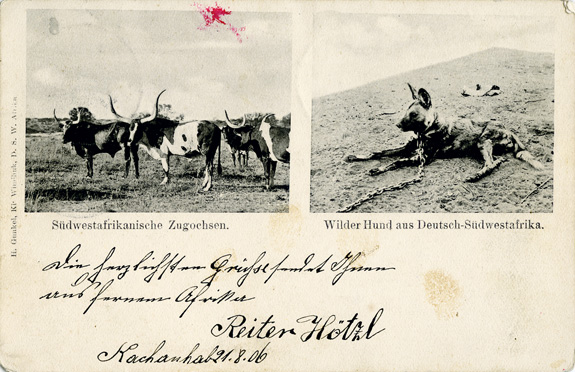 Südwestafrikanische Zugochsen.
Wilder Hund aus Deutsch-Südwestafrika.
Die herzlichsten Grüsse sendet Ihnen
aus fernem Afrika
Reiter Hötzl
21.8.06